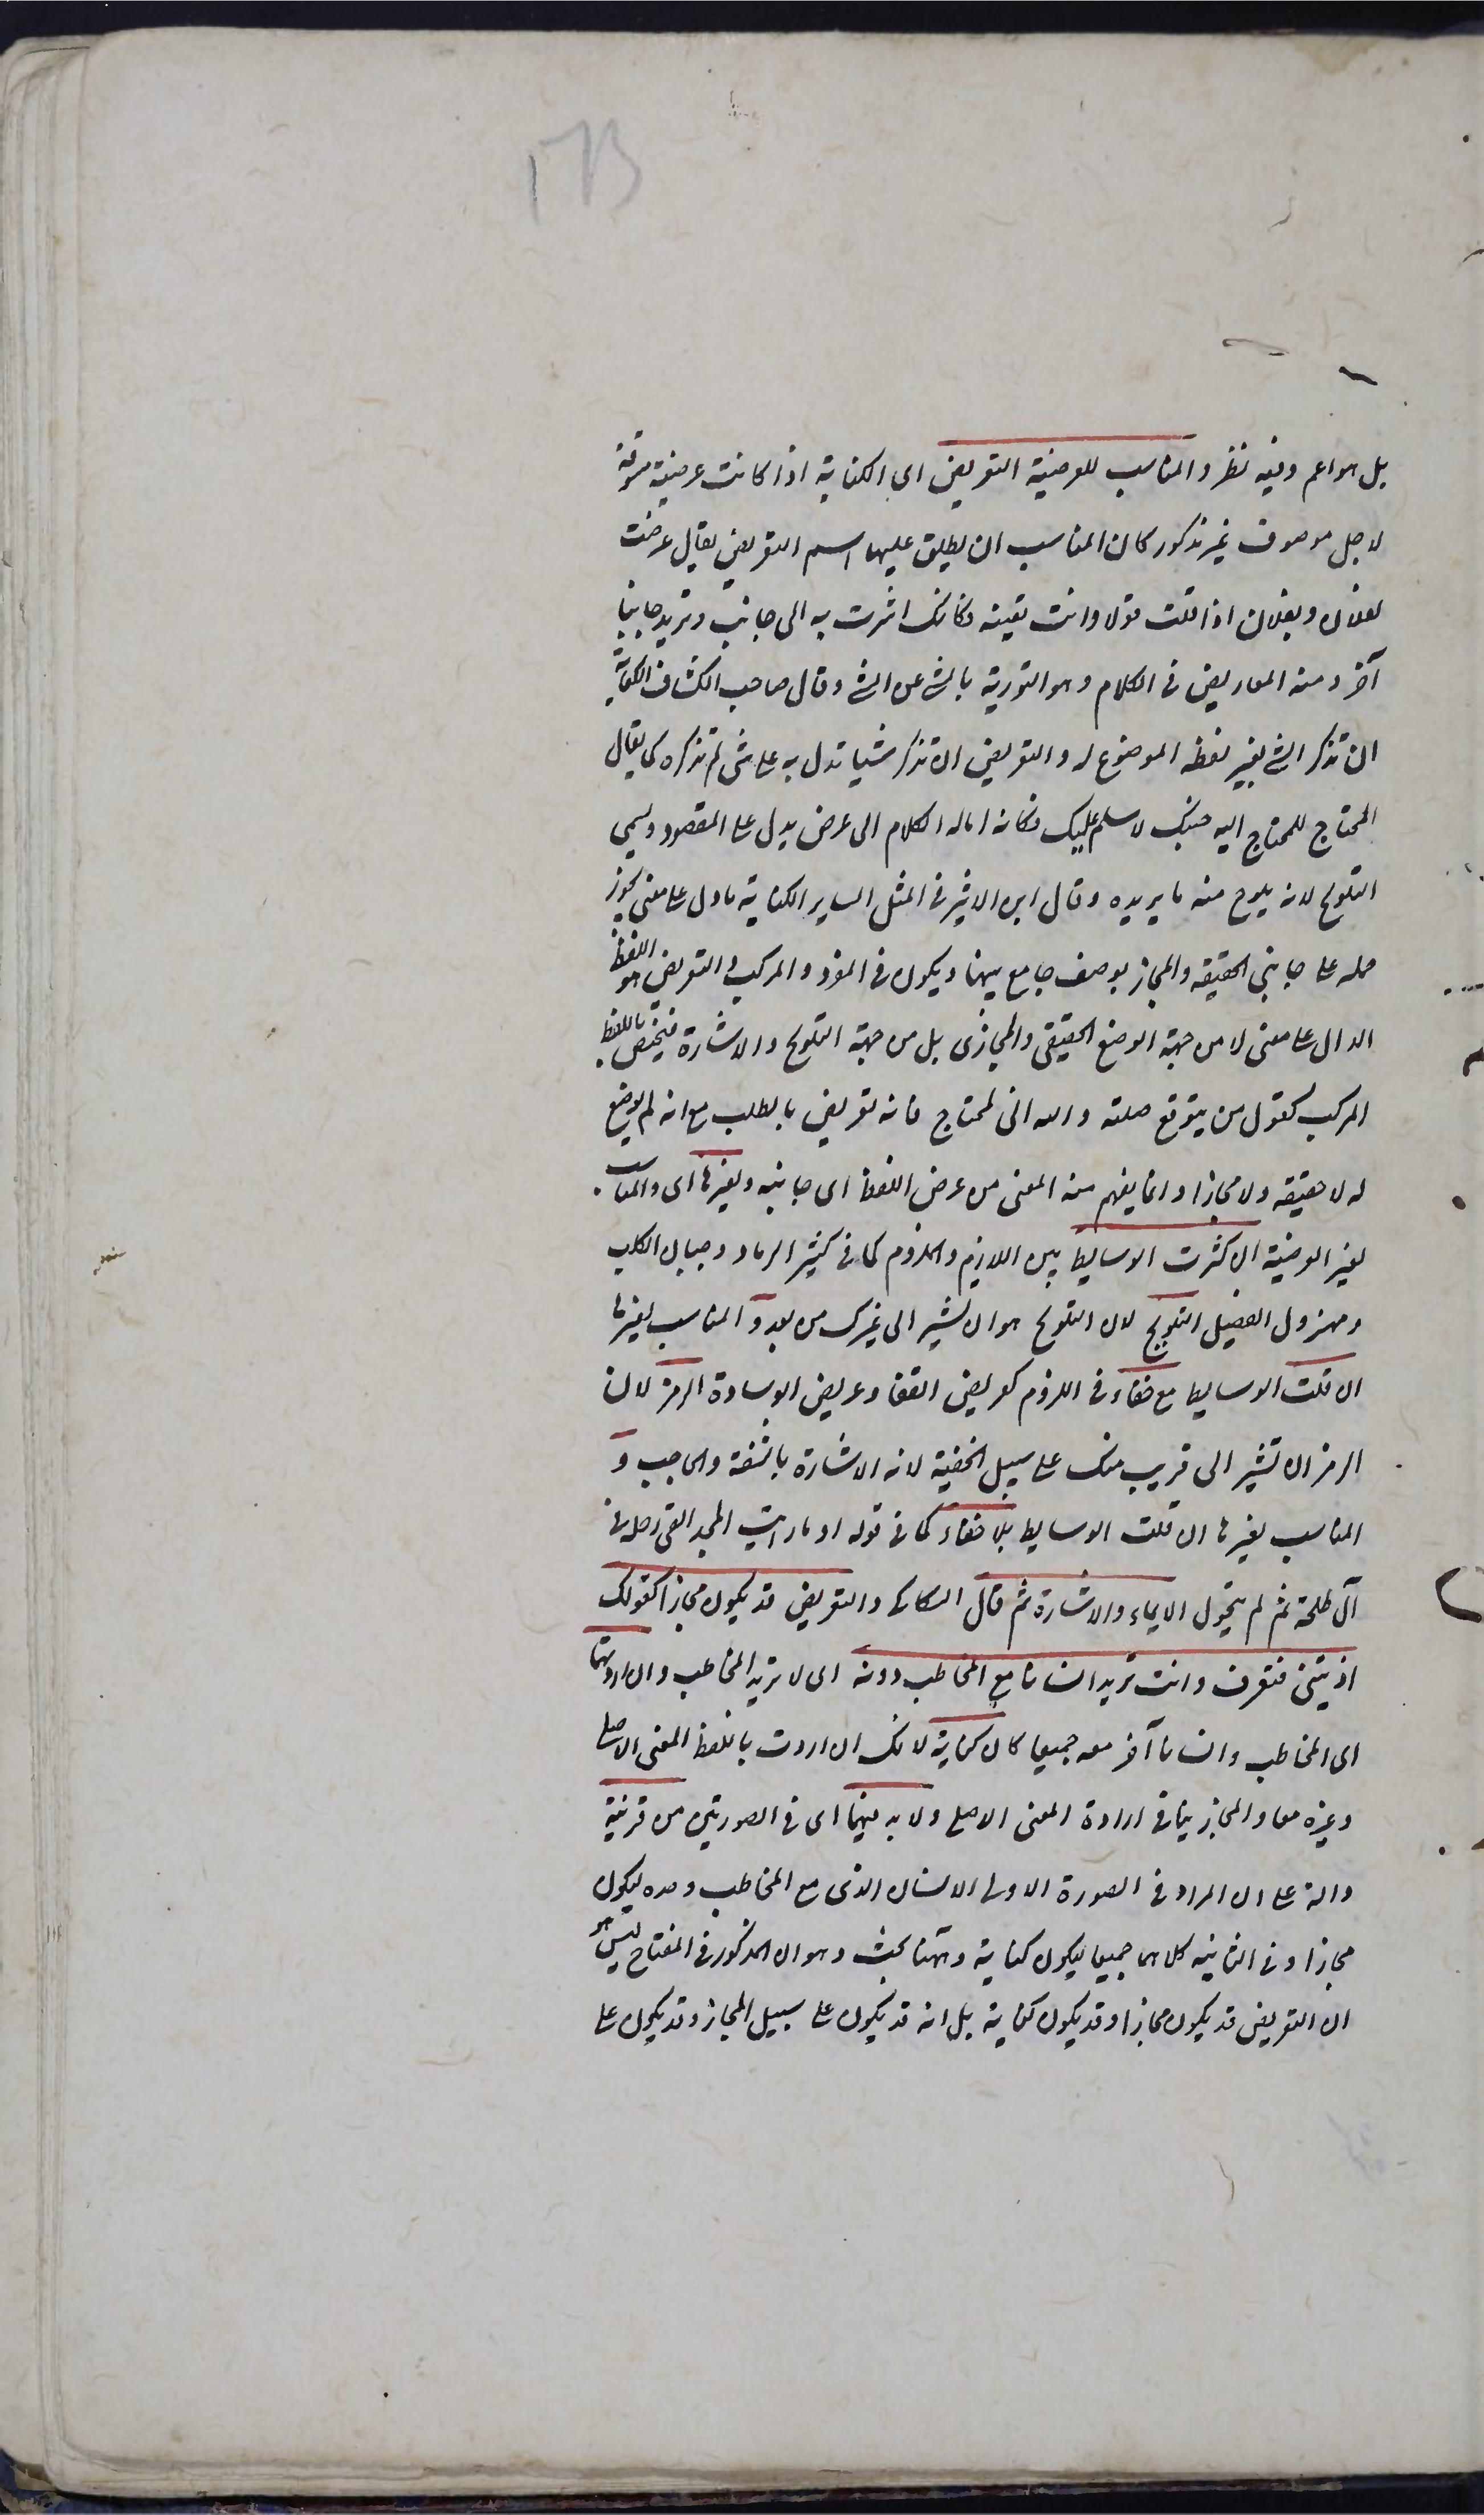 بل هو اعم وفيه نظر والمناسب للعرضية التعريض اى الكناية اذا كانت عرضية مسوقة
لاجل موصوف غير مذكور كان المناسب ان يطلق عليها اسم التعريض يقال عرضت
لفلان وبفلان اذا قلت قولا وانت تعنيه فكانك اشرت به الى جانب وتريد جانبا
آخر ومنه المعاريض فى الكلام وهو التورية بالشئ عن الشئ وقال صاحب الكشاف الكناية
ان تذكر الشئ بغير لفظه الموضوع له والتعريض ان تذكر شيئا تدل به على شئ لم تذكره كما يقال
المحتاج للمحتاج اليه جئتك لاسلم عليك فكانه امالة الكلام الى عرض يدل على المقصود ويسمى
التلويح لانه يلوح منه ما يريده وقال ابن الاثير فى المثل الساير الكناية ما دل على معنى يجوز
حمله على جانبى الحقيقة والمجاز بوصف جامع بينهما ويكون فى المفرد والمركب والتعريض هو اللفظ
الدال على معنى لا من جهة الوضع الحقيقى والمجازى بل من جهة التلويح والاشارة فيختص باللفظ
المركب كقول من يتوقع صلة والله انى لمحتاج فانه تعريض بالطلب مع انه لم يوضع
له لا حقيقة ولا مجازا وانما يفهم منه المعنى من عرض اللفظ اى جانبه ولغيرها اى والمناسب
لغير العرضية ان كثرت الوسايط بين اللازم والملزوم كما فى كثير الرماد وجبان الكلب
ومهزول الفصيل التلويح لان التلويح هو ان تشير الى غيرك من بعد و المناسب لغيرها
ان قلت الوسايط مع خفاء فى اللزوم كعريض القفا وعريض الوسادة الرمز لان
الرمز ان تشير الى قريب منك على سبيل الخفية لانه الاشارة بالشفة والحاجب و
المناسب لغيرها ان قلت الوسايط بلا خفاء كما فى قوله او ما رايت المجد القى رحله فى
آل طلحة ثم لم يتحول الايماء والاشارة ثم قال السكاكى والتعريض قد يكون مجازا كقولك
اذيتنى فتعرف وانت تريد انسانا مع المخاطب دونه اى لا تريد المخاطب وان اردتهما
اى المخاطب وانسانا آخر معه جميعا كان كناية لانك ان اردت باللفظ المعنى الاصلى
وغيره معا والمجاز ينافى ارادة المعنى الاصلى ولا بد فيهما اى فى الصورتين من قرينة
دالة على ان المراد فى الصورة الاولى الانسان الذى مع المخاطب وحده ليكون
مجازا وفى الثانية كلاهما جميعا ليكون كناية وههنا بحث وهو ان المذكور فى المفتاح ليس هو
ان التعريض قد يكون مجازا وقد يكون كناية بل انه قد يكون على سبيل المجاز وقد يكون على